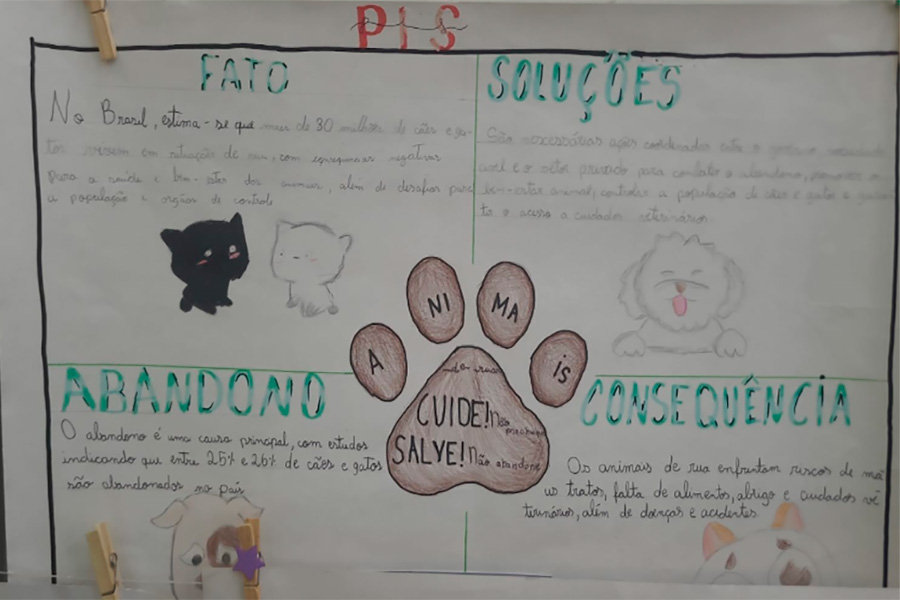 PIS
FATO
No Brasil, estima-se que mais de 30 milhões de cães e ga-
tos vivem em situação de rua, com consequências negativas
para a saúde e bem-estar dos animais, além de desafios para
a população e orgãos de controle
SOLUÇÕES
São necessárias ações coordenadas entre o governo sociedade
civil e o setor privado para combate o abandono, promover o
bem-estar animal, controlar a população de cães e gatos e garan-
ti o acesso a cuidados veterinários.
A NI MA is
de rua
CUIDE! Não
SALVE! Não abandone
ABANDONO
O abandono é uma causa principal, com estudos
indicando que entre 25% e 26% de cães e gatos
são abandonados no país
CONSEQUÊNCIA
Os animais de rua enfrentam riscos de ma
us tratos, falta de alimento, abrigo e cuidados ve
terinários, além de doenças e acidentes.